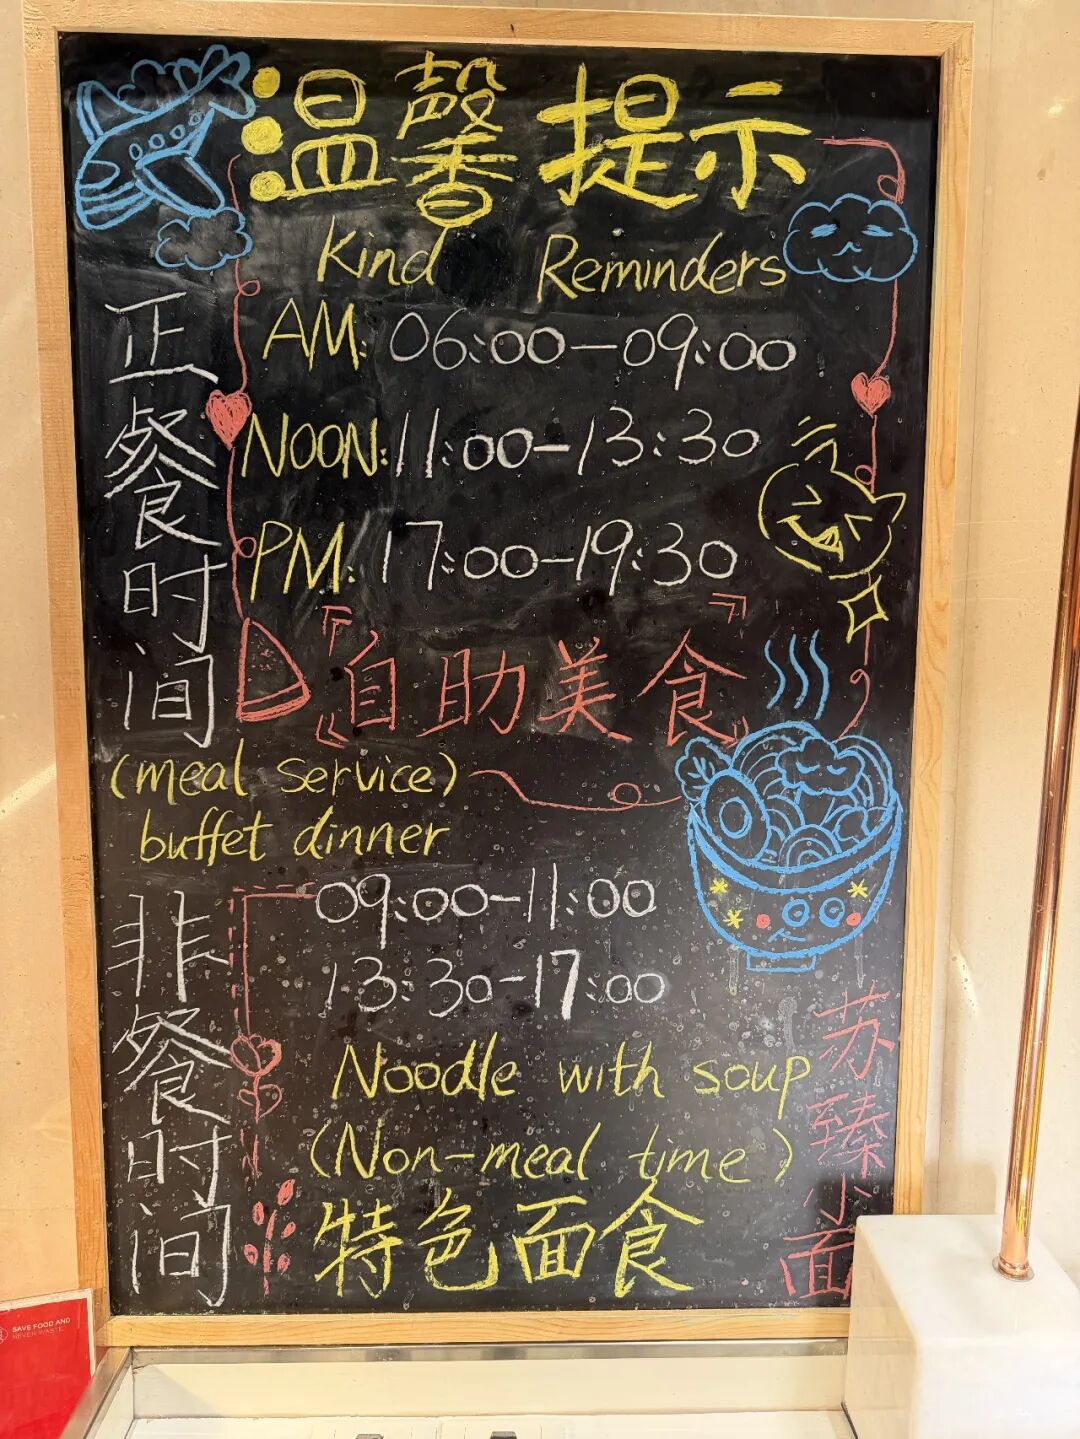 温馨提示
Kind Reminders
正餐时间
AM: 06:00-09:00
NOON: 11:00-13:30
PM: 17:00-19:30
『自助美食』
(meal service)
buffet dinner
非餐时间
09:00-11:00
13:30-17:00
Noodle with soup
(Non-meal time)
特色面食
苏臻小面
SAVE FOOD AND
NEVER WASTE